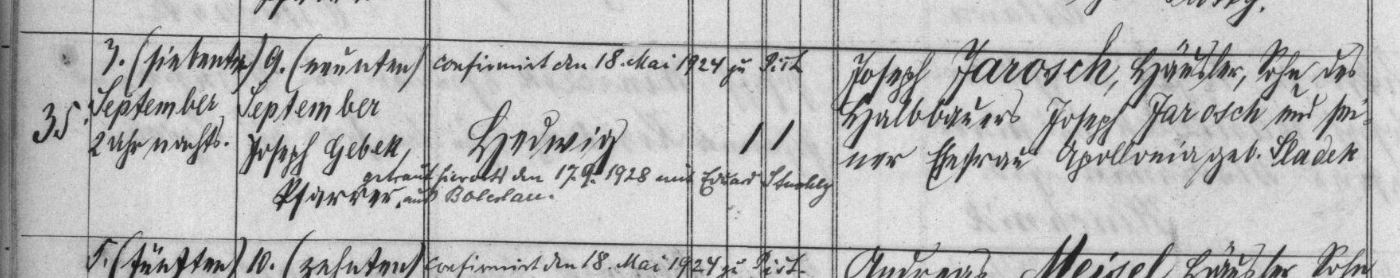 35.
7. (siebenten)
September
2 Uhr nachts.
9. (neunten)
September
Joseph Gebek,
Pfarrer.
confirmirt den 18. Mai 1924 zu
Hedwig
getraut hierorts den 17.9.1928 mit Eduard
aus Boleslau.
1 1
Joseph Jarosch, Häusler, Sohn des
Halbbauers Joseph Jarosch und sei-
ner Ehefrau Apollonia geb. Sladek
5. (fünften)
10. (zehnten)
confirmirt den 18. Mai 1924 zu
Andreas Meisel, Häusler, Sohn